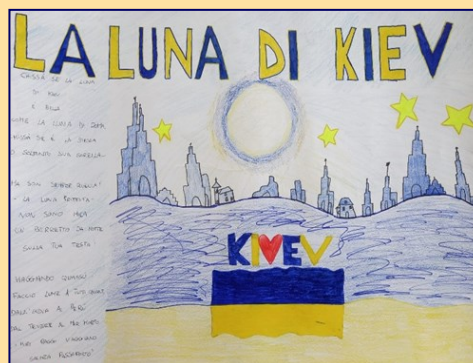 LA LUNA DI KIEV
CHISSÀ SE LA LUNA
DI KIEV
È BELLA
COME LA LUNA DI ROMA,
CHISSÀ SE È LA STESSA
O SOLTANTO SUA SORELLA
MA SON SEMPRE QUELLA!
LA LUNA PROTESTA
NON SONO MICA
UN BERRETTO DA NOTTE
SULLA TUA TESTA!
VIAGGIANDO
FACCIO LUME A TUTTI QUANTI,
DALL'INDIA AL PERÙ,
DAL TEVERE AL MAR MORTO
RAGGI VIAGGIANO
SENZA
KIEV